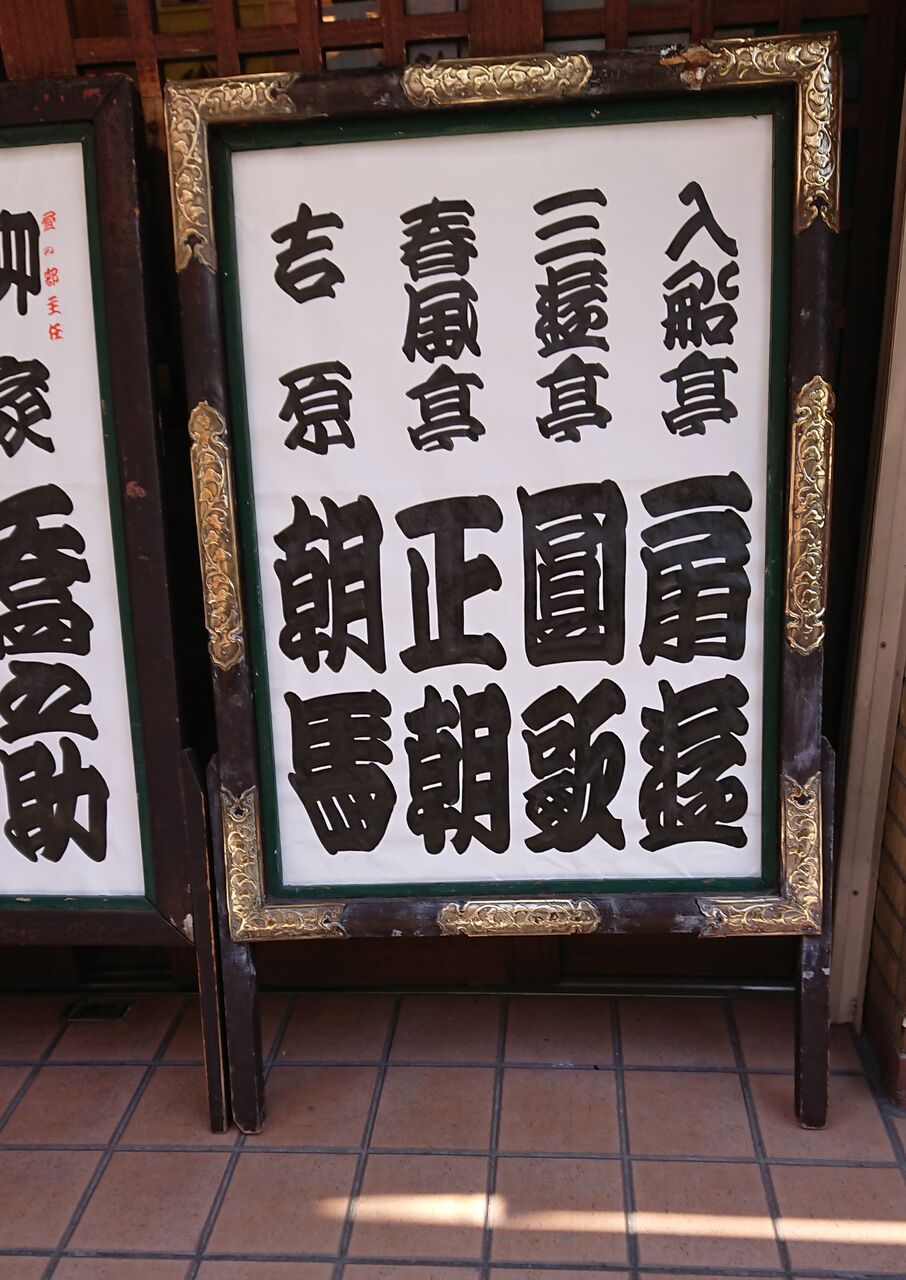 入船亭扇遊
三遊亭圓歌
春風亭正朝
吉原朝馬
昼の部主任
柳家喬之助